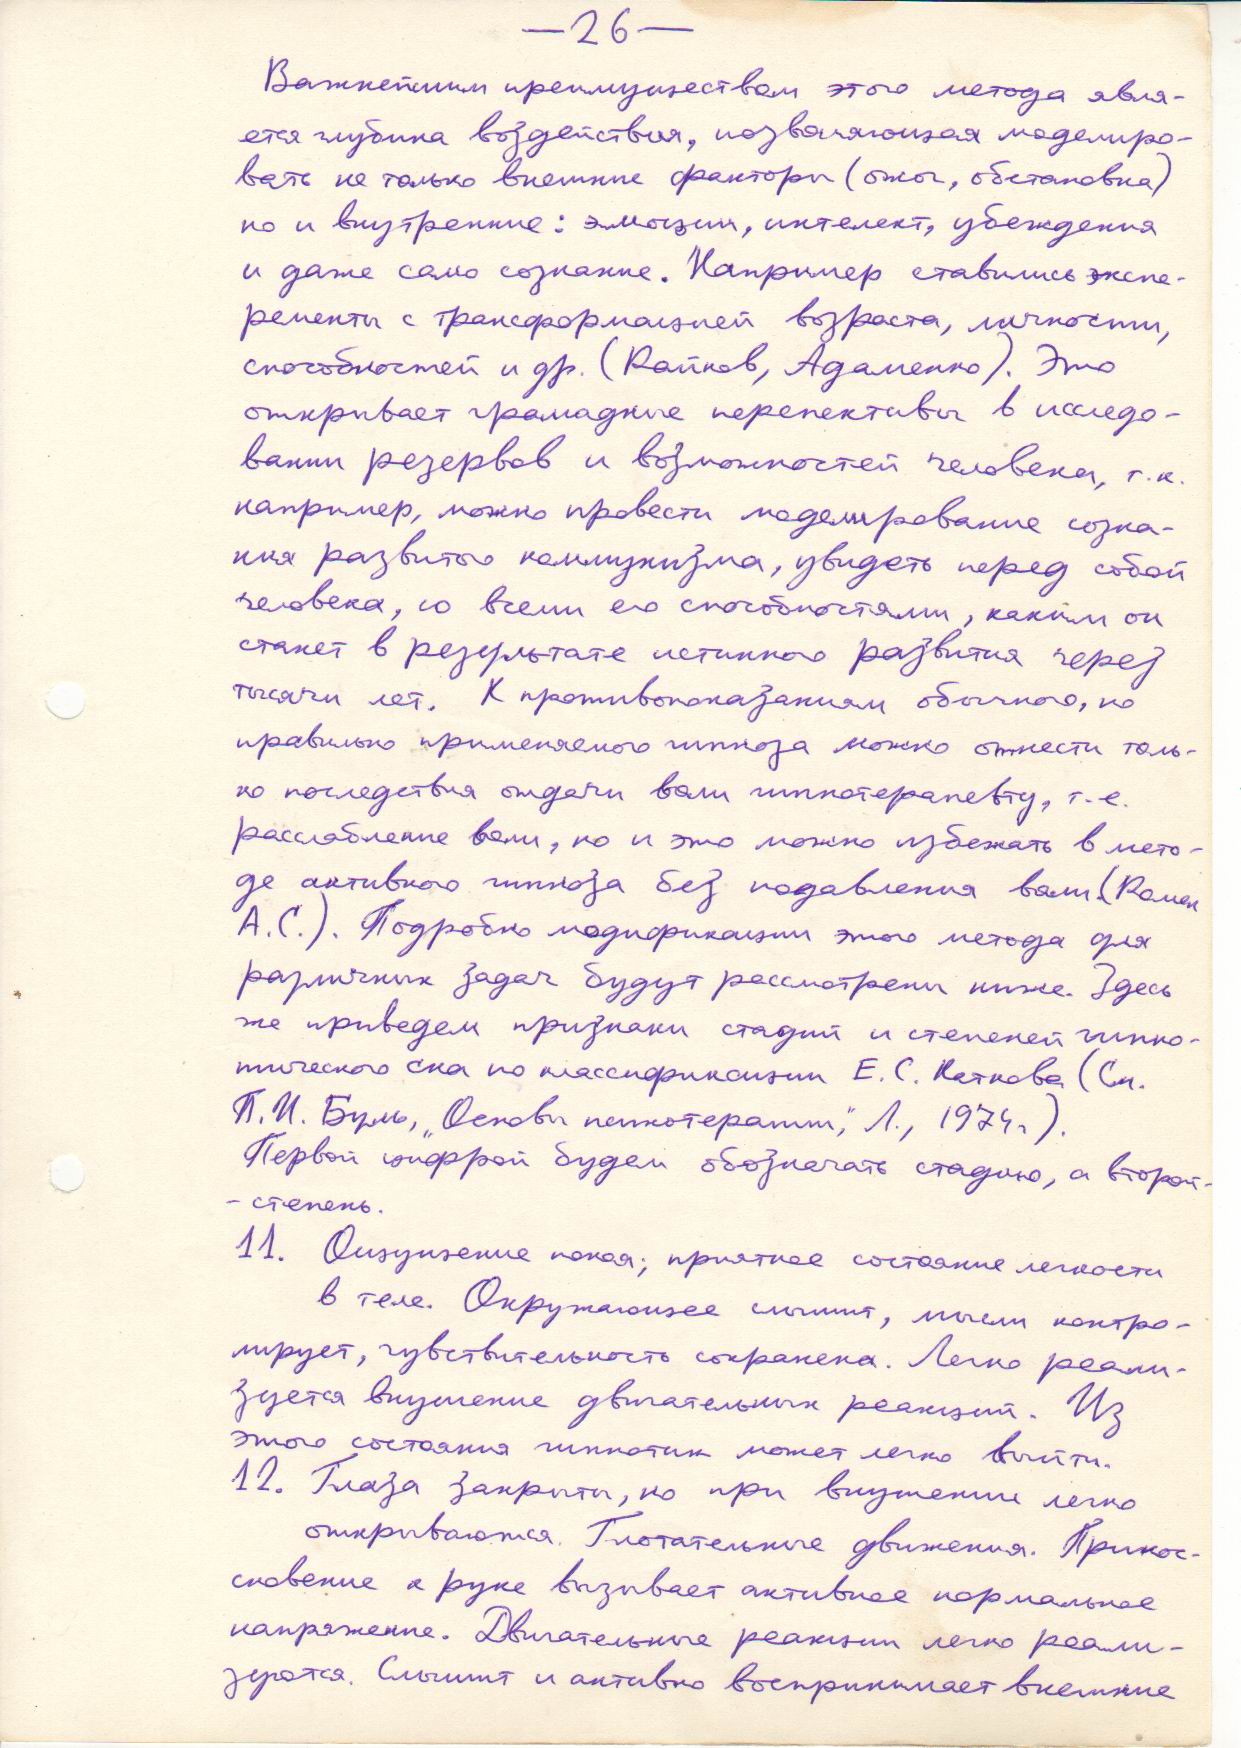 —26—
Важнейшим преимуществом этого метода явля-
ется глубина воздействия, позволяющая моделиро-
вать не только внешние факторы (ожог, обстановка)
но и внутренние: эмоции, интелект, убеждения
и даже само сознание. Например ставились экспе-
ременты с трансформацией возраста, личности,
способностей и др. (Райков, Адаменко). Это
открывает громадные перепективы в исследо-
вании резервов и возможностей человека, т.к.
например, можно провести моделирование созна-
ния развитого коммунизма, увидеть перед собой
человека, со всеми его способностями, каким он
станет в результате истинного развития через
тысячи лет. К противопоказаниям обычного, но
правильно применяемого гипноза можно отнести толь-
ко последствия отдачи воли гипнотерапевту, т.е.
расслабление воли, но и это можно избежать в мето-
де активного гипноза без подавления воли (Ромен
А.С.). Подробно модификации этого метода для
различных задач будут рассмотрены ниже. Здесь
же приведем признаки стадий и степеней гипно-
тического сна по классификации Е.С. Каткова (См.
П.И. Буль, „Основы психотерапии", Л., 1974г.).
Первой цифрой будем обозначать стадию, а второй-
- степень.
11. Ощущение покоя; приятное состояние легкости
в теле. Окружающее слышит, мысли контро-
лирует, чувствительность сохранена. Легко реали-
зуется внушение двигательных реакций. Из
этого состояния гипнотик может легко выйти.
12. Глаза закрыты, но при внушении легко
открываются. Глотательные движения. Прикос-
сновение к руке вызывает активное нормальное
напряжение. Двигательные реакции легко реали-
зуются. Слышит и активно воспринимает внешние